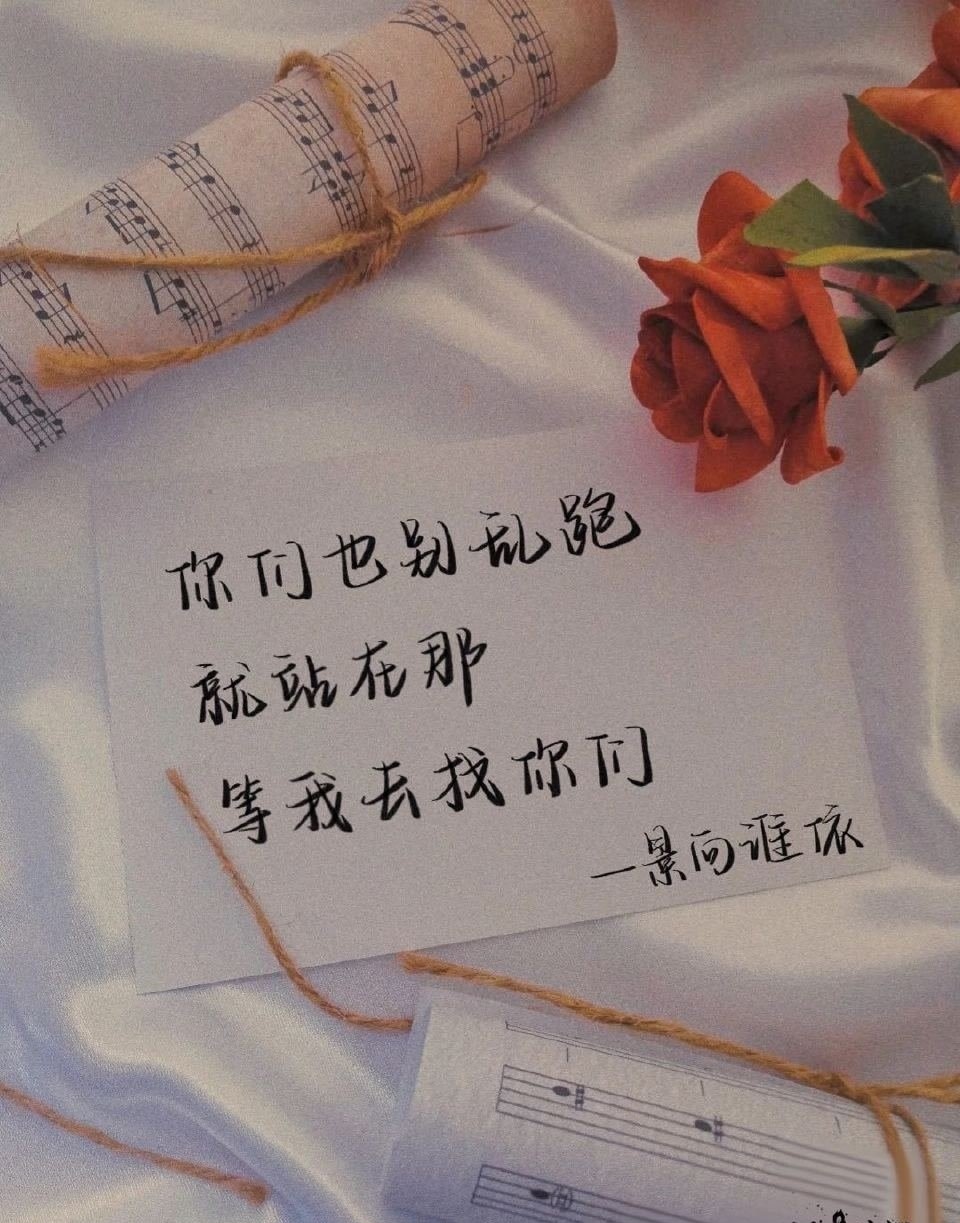 你们也别乱跑
就站在那
等我去找你们
—景向谁依